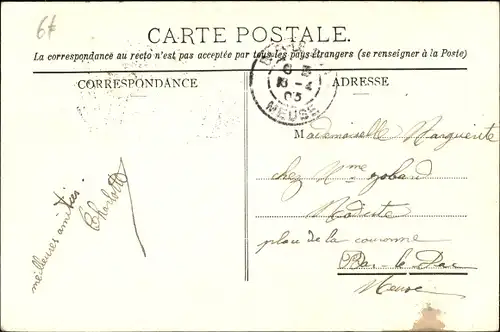 6f
CARTE POSTALE.
La correspondance au recto n'est pas acceptée par tous les pays étrangers (se renseigner à la Poste)
CORRESPONDANCE
meilleures amitiés.
Charlotte
ADRESSE
MEUSE
Mademoiselle Marguerite
chez Mme
Modiste
place de la couronne
Bar-le-Duc
Meuse